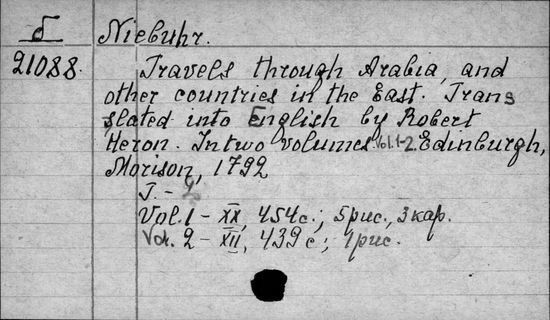 δ Niebuhr.
21088. Travels through Arabia, and
other countries in the East. Trans
slated into English by Robert
Heron. In two volumes. Vol. 1-2. Edinburgh,
Morison, 1792
Vol. 1 - XX, 454 с.; 5 рис., 3 кар.
Vol. 2 - XII, 439 с.; 1 рис.